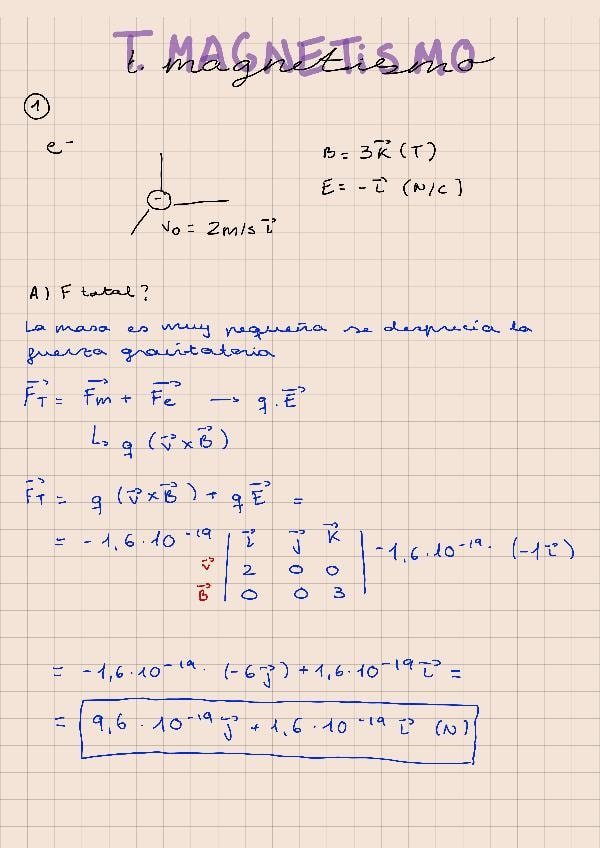 T. MAGNETiSMO
t. magnetismo
1
e⁻
B = 3k⃗ (T)
E = -i⃗ (N/C)
-
v₀ = 2m/s i⃗
A) F total?
La masa es muy pequeña se desprecia la
fuerza gravitatoria
F⃗T = F⃗m + F⃗e → q · E⃗
↳ q (v⃗ × B⃗)
F⃗T = q (v⃗ × B⃗) + q E⃗ =
= -1,6 · 10⁻¹⁹ | i⃗ j⃗ k⃗ | -1,6 · 10⁻¹⁹ · (-1i⃗)
v⃗ 2 0 0
B⃗ 0 0 3
= -1,6 · 10⁻¹⁹ · (-6j⃗) + 1,6 · 10⁻¹⁹ i⃗ =
= 9,6 · 10⁻¹⁹ j⃗ + 1,6 · 10⁻¹⁹ i⃗ (N)